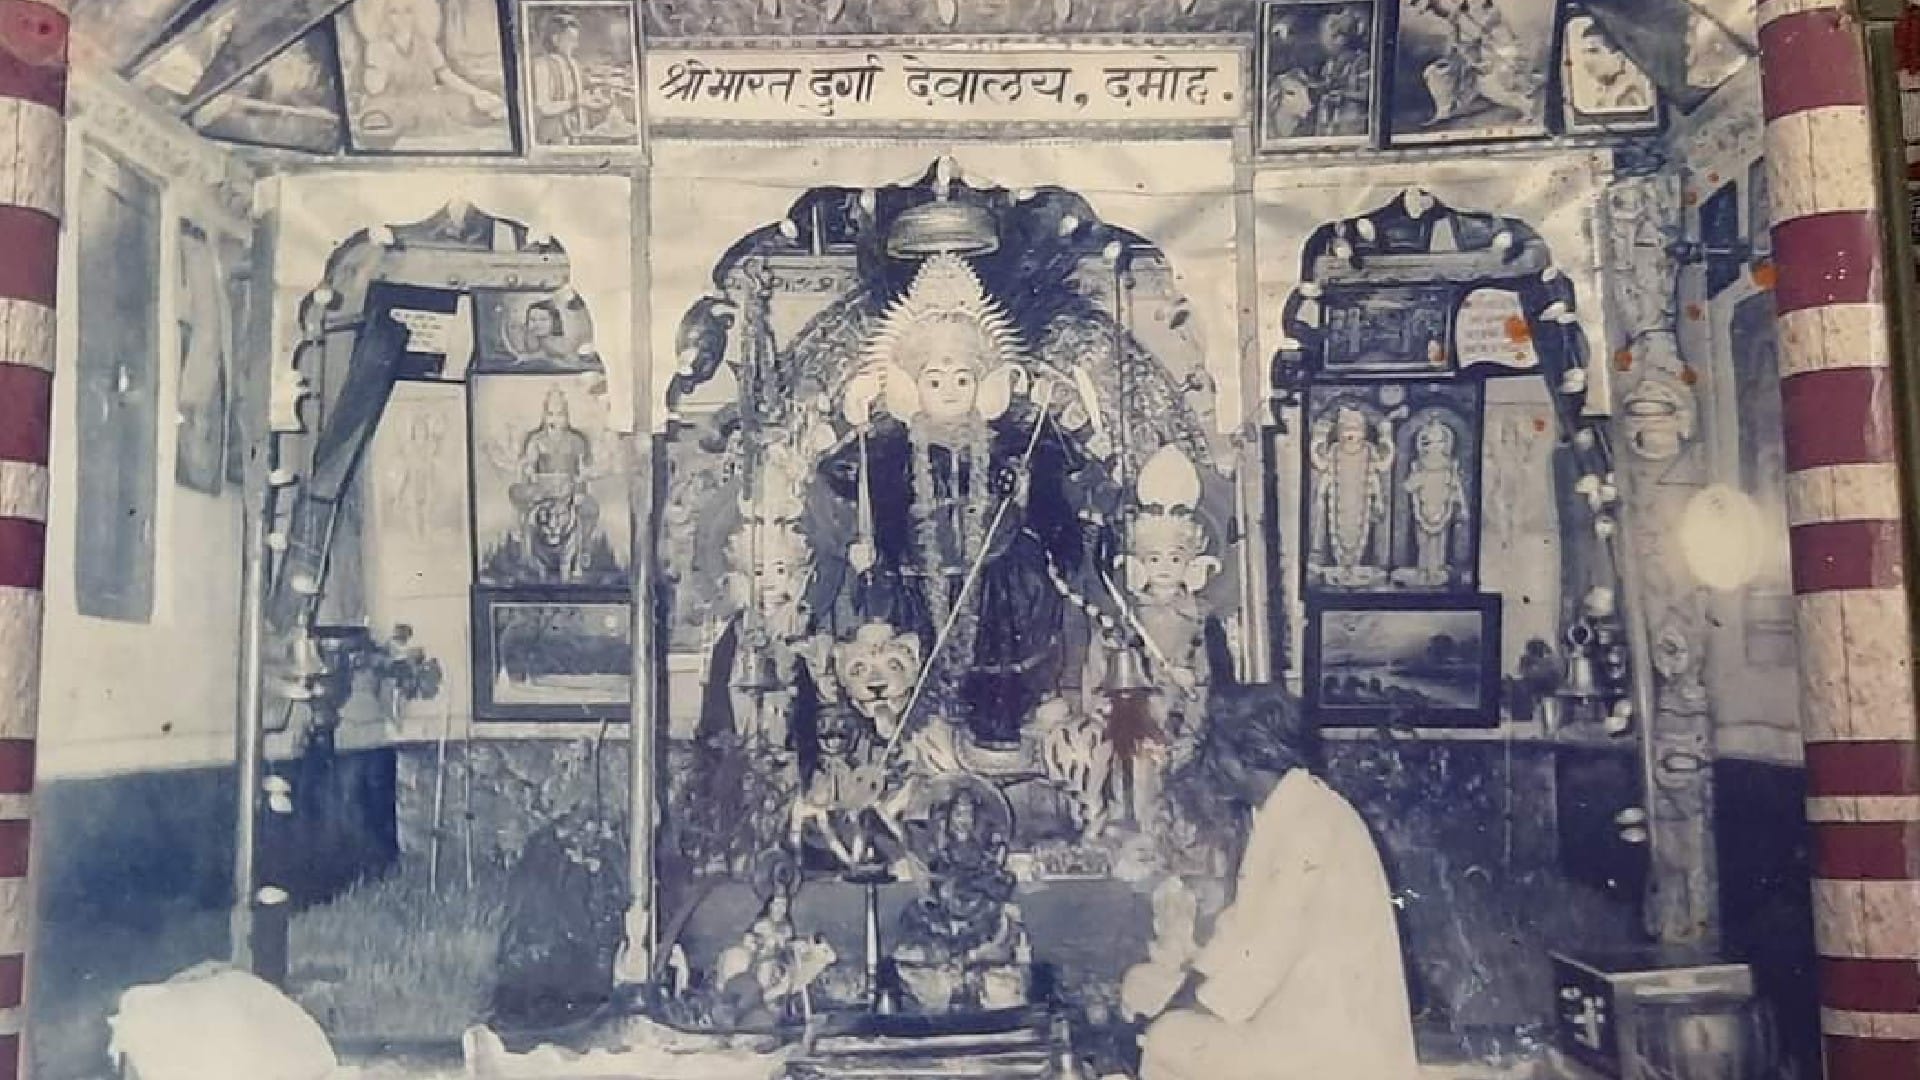 श्री भारत दुर्गा देवालय, दमोह.